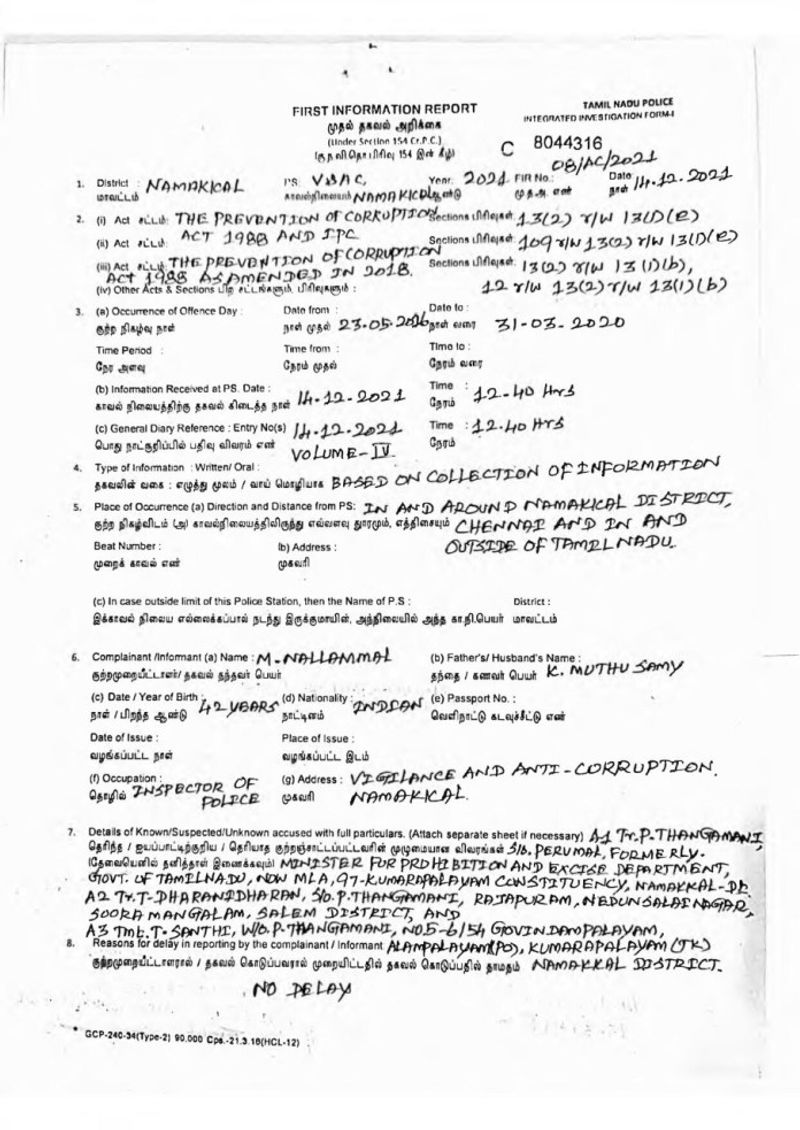 FIRST INFORMATION REPORT
முதல் தகவல் அறிக்கை
(Under Section 154 Cr.P.C.)
(கு.ந.வி.தொ பிரிவு 154 இன் கீழ்)
TAMIL NADU POLICE
INTEGRATED INVESTIGATION FORM-I
C 8044316
1. District : NAMAKKAL PS: V&AC, Year: 2021 FIR No.: 08/AC/2021 Date 14.12.2021
மாவட்டம் காவல்நிலையம் NAMAKKAL ஆண்டு மு.த.அ. எண் நாள்
2. (i) Act சட்டம்: THE PREVENTION OF CORRUPTION Sections பிரிவுகள்: 13(2) r/w 13(1)(e)
(ii) Act சட்டம்: ACT 1988 AND IPC Sections பிரிவுகள்: 109 r/w 13(2) r/w 13(1)(e)
(iii) Act சட்டம்: THE PREVENTION OF CORRUPTION Sections பிரிவுகள்: 13(2) r/w 13(1)(b),
ACT 1988 AS AMENDED IN 2018.
(iv) Other Acts & Sections பிற சட்டங்களும், பிரிவுகளும் : 12 r/w 13(2) r/w 13(1)(b)
3. (a) Occurrence of Offence Day : Date from : Date to :
குற்ற நிகழ்வு நாள் நாள் முதல் 23.05.2016 நாள் வரை 31-03-2020
Time Period : Time from : Time to :
நேர அளவு நேரம் முதல் நேரம் வரை
(b) Information Received at PS. Date : 14.12.2021 Time : 12-40 Hrs
காவல் நிலையத்திற்கு தகவல் கிடைத்த நாள் நேரம்
(c) General Diary Reference : Entry No(s) 14.12.2021 Time : 12.40 Hrs
பொது நாட்குறிப்பில் பதிவு விவரம் எண் VOLUME-IV நேரம்
4. Type of Information : Written/ Oral :
தகவலின் வகை : எழுத்து மூலம் / வாய் மொழியாக BASED ON COLLECTION OF INFORMATION
5. Place of Occurrence (a) Direction and Distance from PS: IN AND AROUND NAMAKKAL DISTRICT,
குற்ற நிகழ்விடம் (அ) காவல்நிலையத்திலிருந்து எவ்வளவு தூரமும், எத்திசையும் CHENNAI AND IN AND
Beat Number : (b) Address : OUTSIDE OF TAMILNADU.
முறைக் காவல் எண் முகவரி
(c) In case outside limit of this Police Station, then the Name of P.S : District :
இக்காவல் நிலைய எல்லைக்கப்பால் நடந்து இருக்குமாயின், அந்நிலையில் அந்த கா.நி.பெயர் மாவட்டம்
6. Complainant /Informant (a) Name : M. NALLAMMAL (b) Father's/ Husband's Name :
குற்றமுறையீட்டாளர்/ தகவல் தந்தவர் பெயர் தந்தை / கணவர் பெயர் K. MUTHU SAMY
(c) Date / Year of Birth : 42 YEARS (d) Nationality : INDIAN (e) Passport No. :
நாள் / பிறந்த ஆண்டு நாட்டினம் வெளிநாட்டு கடவுச்சீட்டு எண்
Date of Issue : Place of Issue :
வழங்கப்பட்ட நாள் வழங்கப்பட்ட இடம்
(f) Occupation : INSPECTOR OF (g) Address : VIGILANCE AND ANTI-CORRUPTION.
தொழில் POLICE முகவரி NAMAKKAL.
7. Details of Known/Suspected/Unknown accused with full particulars. (Attach separate sheet if necessary) A1 Tr.P.THANGAMANI,
தெரிந்த / ஐயப்பாட்டிற்குரிய / தெரியாத குற்றஞ்சாட்டப்பட்டவரின் முழுமையான விவரங்கள் S/o. PERUMAL, FORMERLY.
(தேவையெனில் தனித்தாள் இணைக்கவும்) MINISTER FOR PROHIBITION AND EXCISE DEPARTMENT,
GOVT. OF TAMILNADU, NOW MLA, 97-KUMARAPALAYAM CONSTITUENCY, NAMAKKAL-Dt.
A2 Tr.T-DHARANIDHARAN, S/o.P.THANGAMANI, RAJAPURAM, NEDUNSALAI NAGAR,
SOORAMANGALAM, SALEM DISTRICT, AND
A3 Tmt.T.SANTHI, W/o.P.THANGAMANI, NO.5-6/54 GOVINDAMPALAYAM,
8. Reasons for delay in reporting by the complainant / Informant ALAMPALAYAM(PO), KUMARAPALAYAM (TK)
குற்றமுறையீட்டாளரால் / தகவல் கொடுப்பவரால் முறையிட்டதில் தகவல் கொடுப்பதில் தாமதம் NAMAKKAL DISTRICT.
NO DELAY
* GCP-240-34(Type-2) 90,000 Cps.-21.3.18(HCL-12)